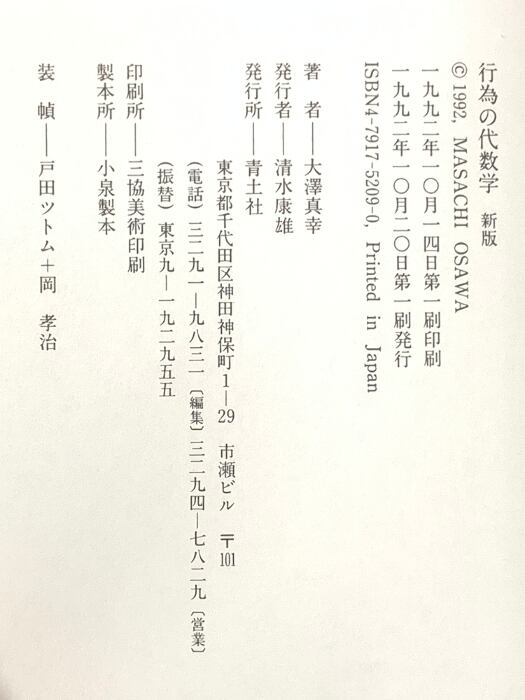 行為の代数学 新版
© 1992, MASACHI OSAWA
一九九二年一〇月一四日第一刷印刷
一九九二年一〇月二〇日第一刷発行
ISBN4-7917-5209-0, Printed in Japan
著 者──大澤真幸
発行者──清水康雄
発行所──青土社
東京都千代田区神田神保町1─29 市瀬ビル 〒101
(電話)三二九一─九八三一〔編集〕三二九四─七八二九〔営業〕
(振替)東京九─一九二九五五
印刷所──三協美術印刷
製本所──小泉製本
装 幀──戸田ツトム＋岡 孝治